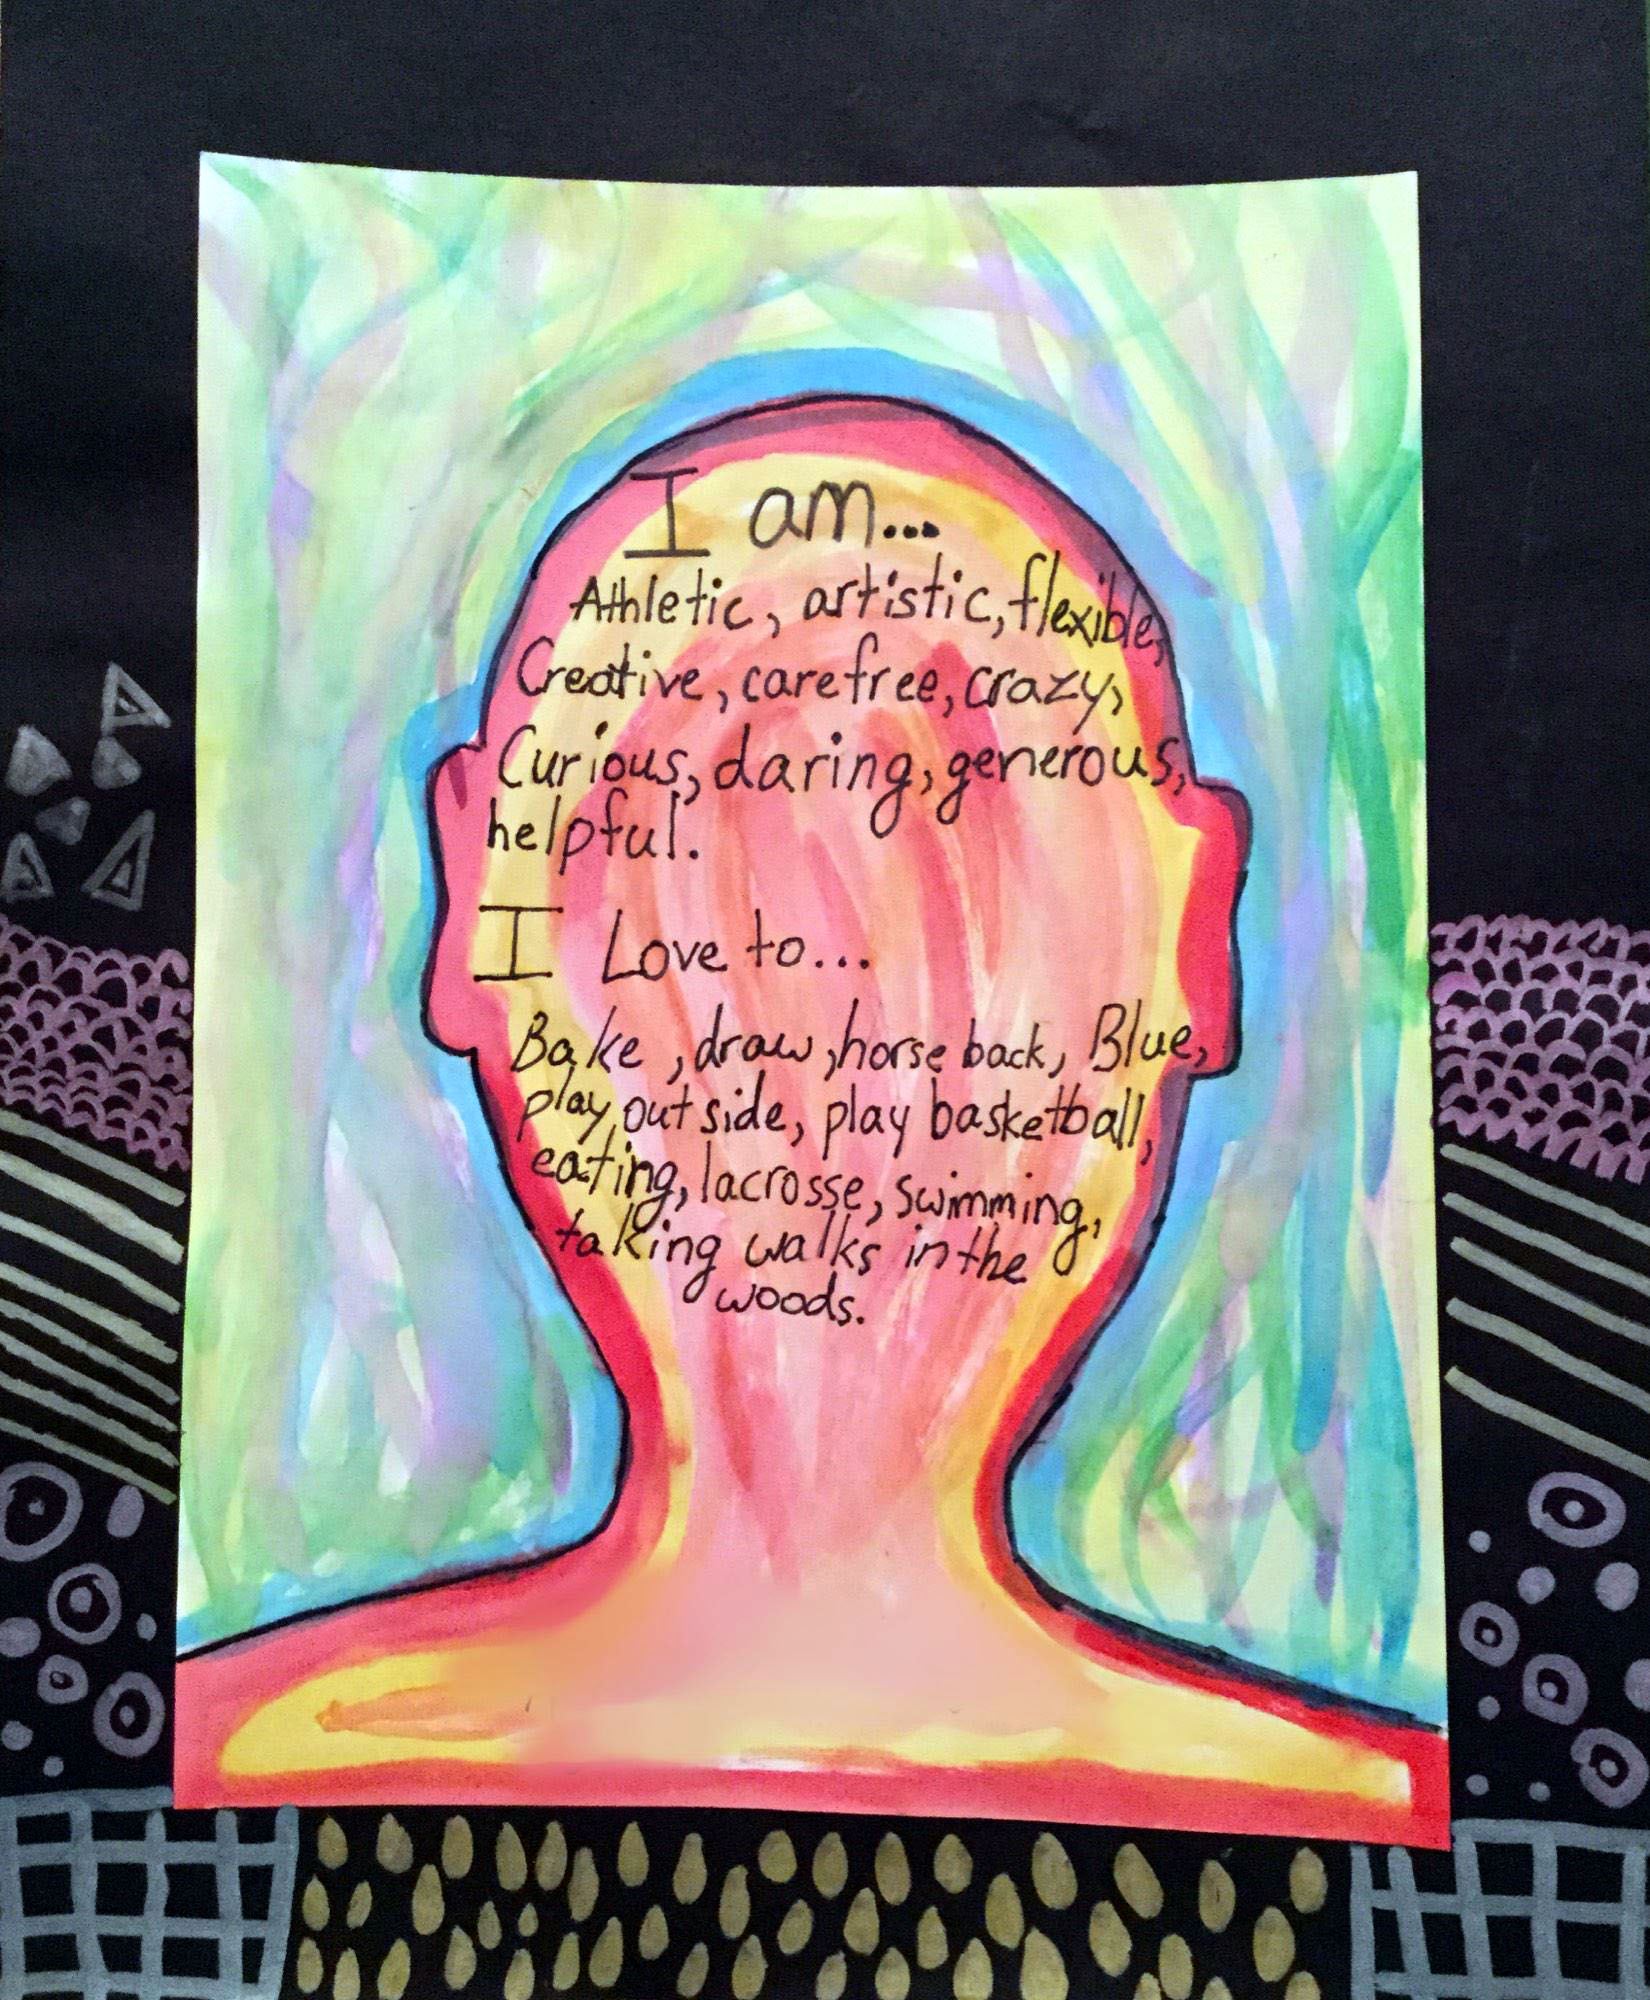 I am...
Athletic, artistic, flexible,
Creative, carefree, crazy,
Curious, daring, generous,
helpful.
I Love to...
Bake, draw, horse back, Blue,
play outside, play basketball,
eating, lacrosse, swimming,
taking walks in the
woods.